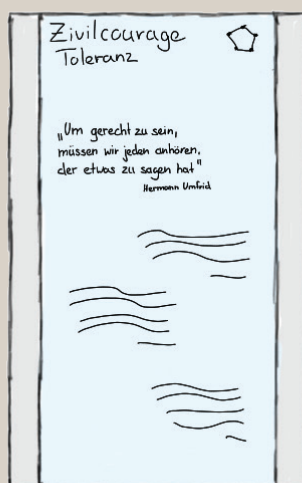 Zivilcourage
Toleranz
„Um gerecht zu sein,
müssen wir jeden anhören,
der etwas zu sagen hat"
Hermann Umfrid